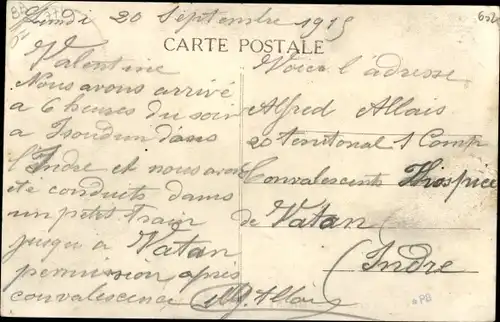 Lundi 20 Septembre 1915
CARTE POSTALE
Valentine
Nous avons arrivé
a 6 heures du soir
a Issoudun dans
l'Indre et nous avons
été conduits dans
un petit Train
jusqu a Vatan
permission après
convalescence Allais
Voici l'adresse
Alfred Allais
20 territorial 1 Comp
Convalescents Hospice
de Vatan
(Indre